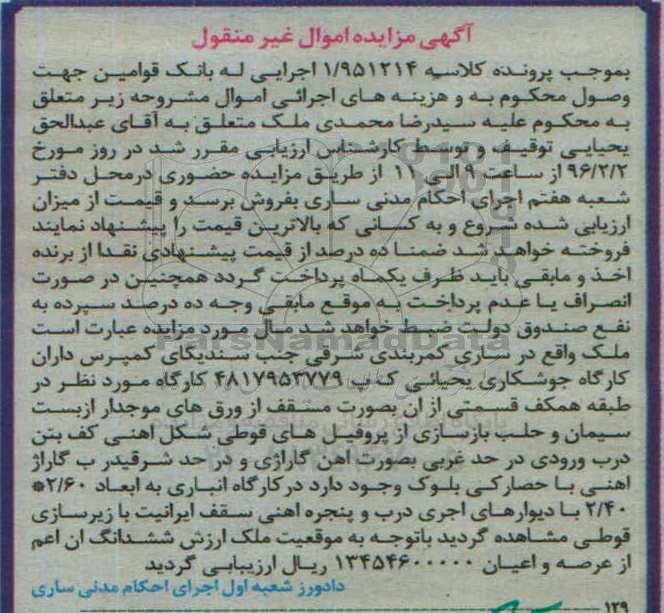 آگهی مزایده اموال غیر منقول
بموجب پرونده کلاسه ۱/۹۵۱۲۱۴ اجرایی له بانک قوامین جهت
وصول محکوم به و هزینه های اجرائی اموال مشروحه زیر متعلق
به محکوم علیه سیدرضا محمدی ملک متعلق به آقای عبدالحق
یحیایی توقیف و توسط کارشناس ارزیابی مقرر شد در روز مورخ
۹۶/۲/۲ از ساعت ۹ الی ۱۱ از طریق مزایده حضوری درمحل دفتر
شعبه هفتم اجرای احکام مدنی ساری بفروش برسد و قیمت از میزان
ارزیابی شده شروع و به کسانی که بالاترین قیمت را پیشنهاد نمایند
فروخته خواهد شد ضمنا ده درصد از قیمت پیشنهادی نقدا از برنده
اخذ و مابقی باید ظرف یکماه پرداخت گردد همچنین در صورت
انصراف یا عدم پرداخت به موقع مابقی وجه ده درصد سپرده به
نفع صندوق دولت ضبط خواهد شد مال مورد مزایده عبارت است
ParsNamadData
ملک واقع در ساری کمربندی شرقی جنب سندیکای کمپرس داران
کارگاه جوشکاری یحیائی ک پ ۴۸۱۷۹۵۳۷۷۹ کارگاه مورد نظر در
طبقه همکف قسمتی از ان بصورت مسقف از ورق های موجدار ازبست
سیمان و حلب بازسازی از پروفیل های قوطی شکل اهنی کف بتن
درب ورودی در حد غربی بصورت اهن گاراژی و در حد شرقیدر ب گاراژ
اهنی با حصارکی بلوک وجود دارد درکارگاه انباری به ابعاد ۲/۶۰*
۲/۴۰ با دیوارهای اجری درب و پنجره اهنی سقف ایرانیت با زیرسازی
قوطی مشاهده گردید باتوجه به موقعیت ملک ارزش ششدانگ ان اعم
از عرصه و اعیان ۱۳۴۵۴۶۰۰۰۰۰ ریال ارزیبابی گردید
دادورز شعبه اول اجرای احکام مدنی ساری
۱۲۹